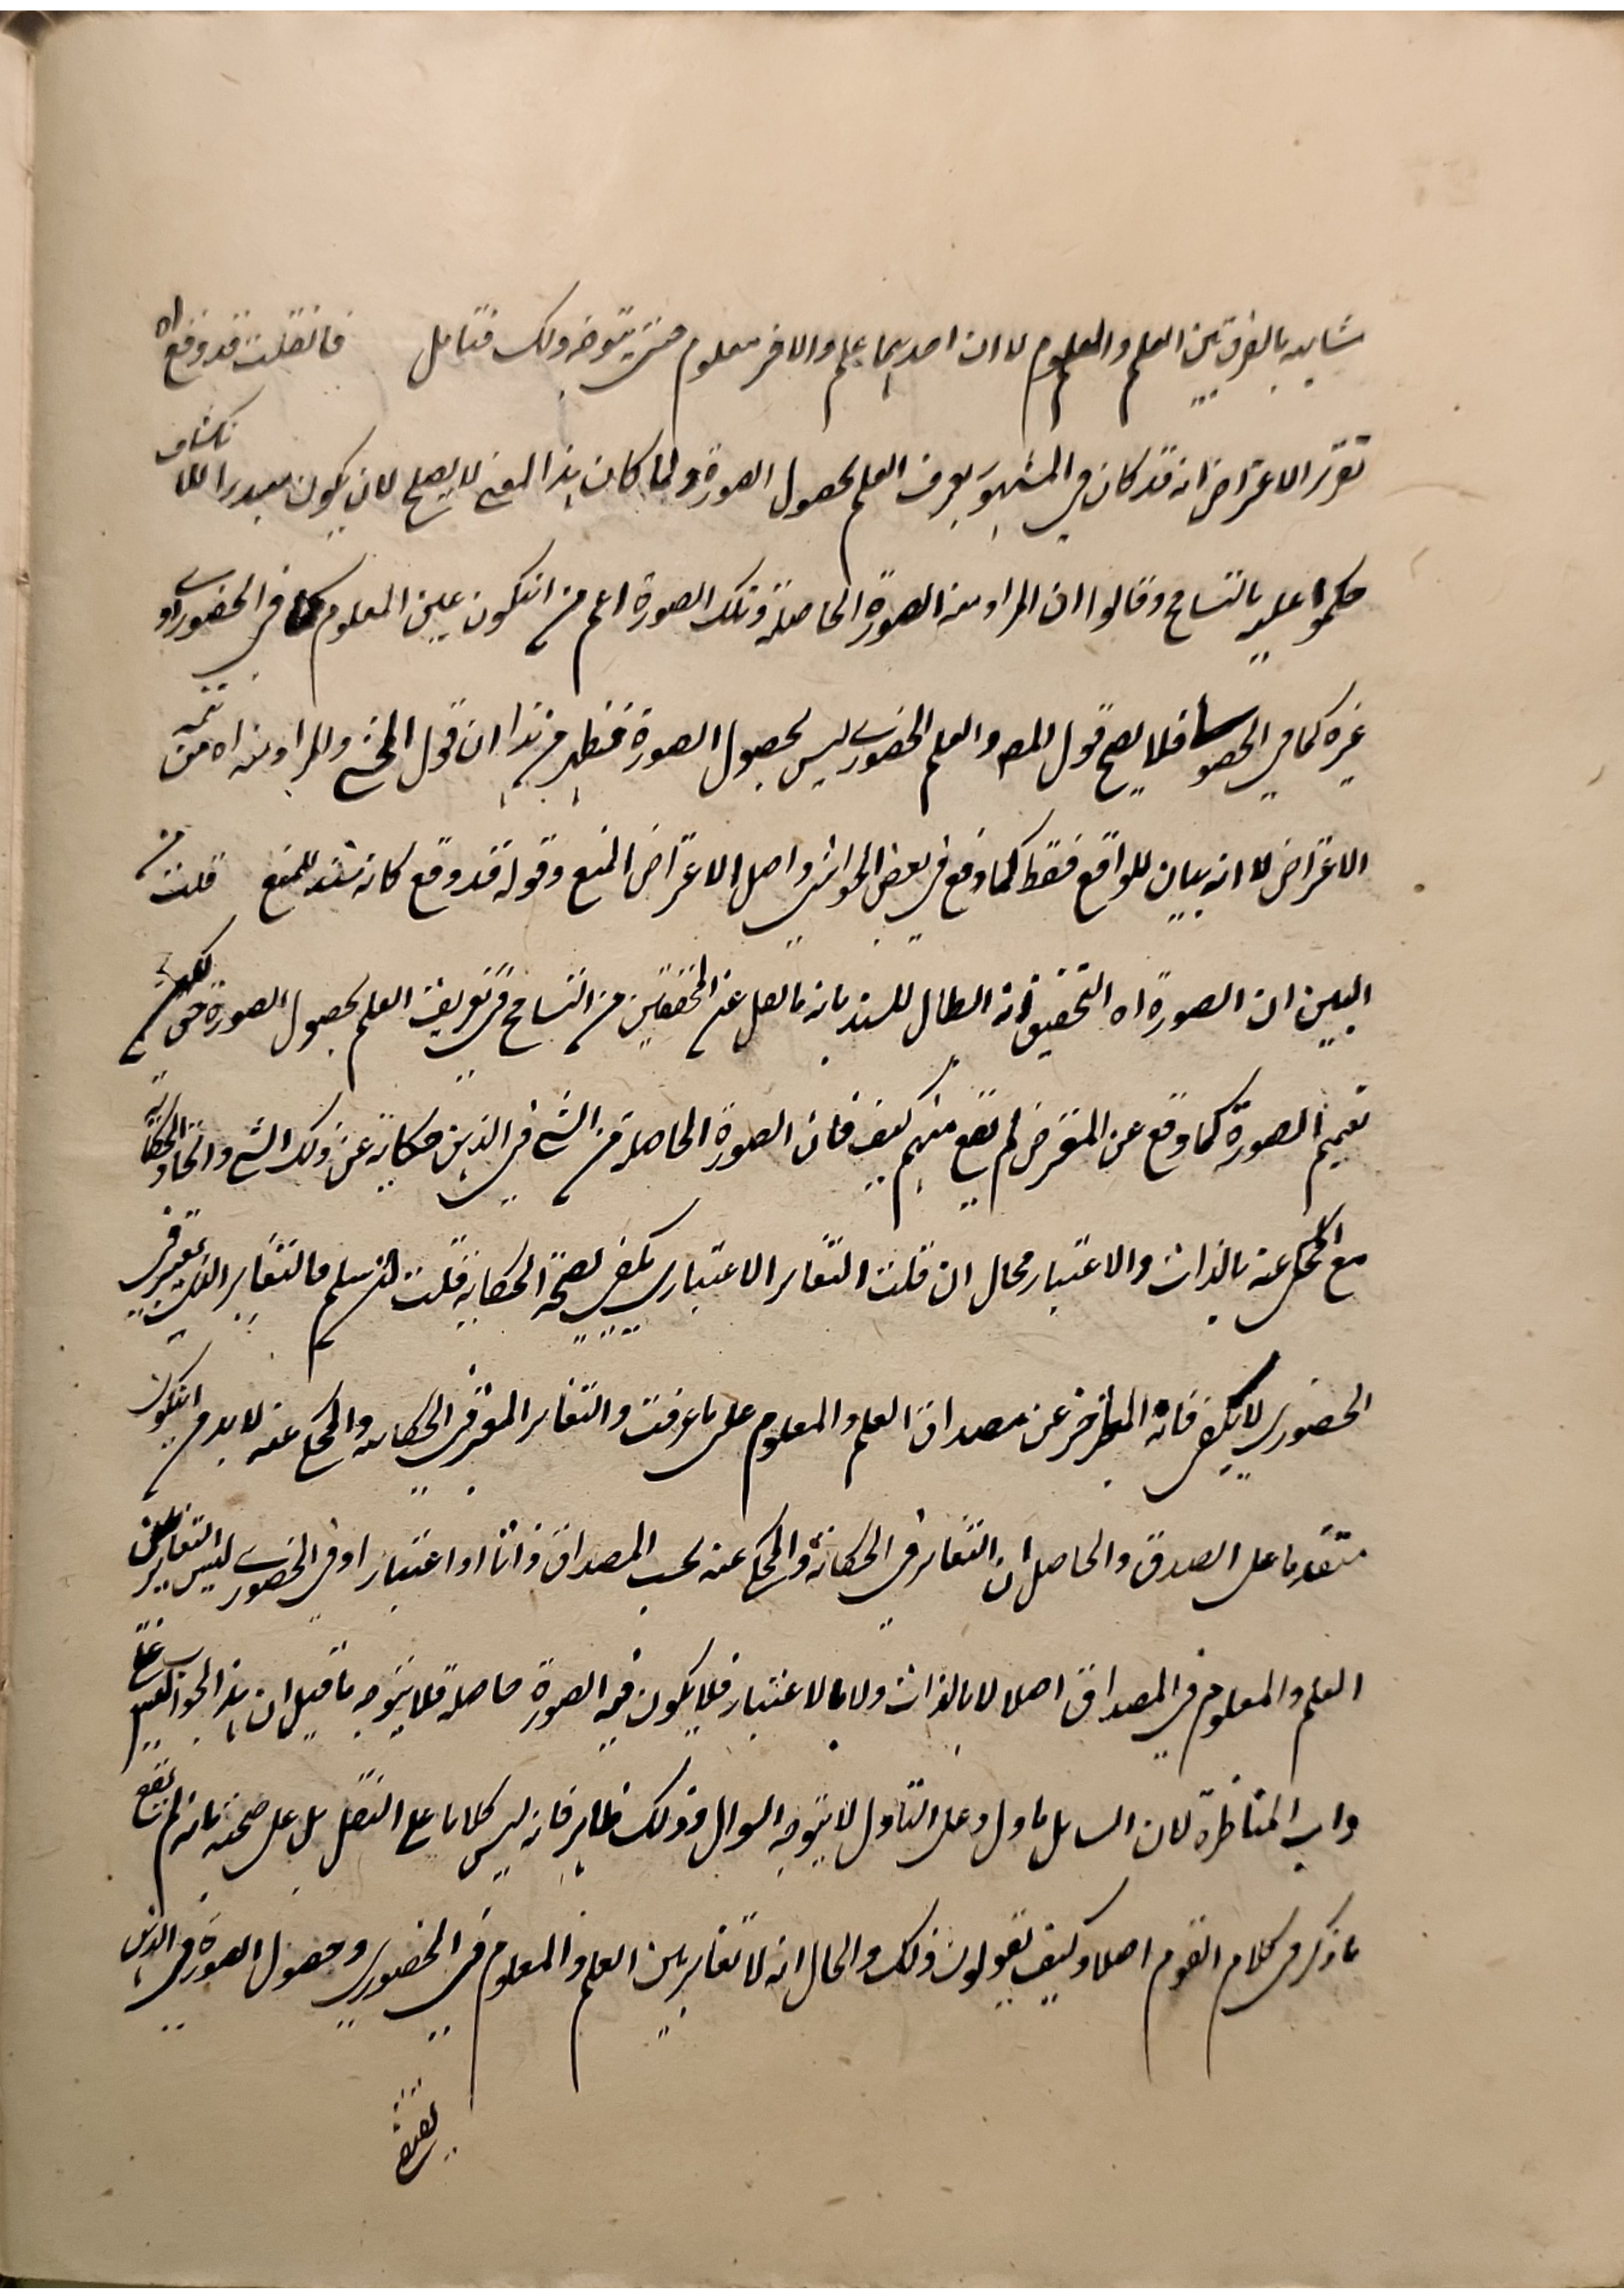 شاهد بالفرق بين العلم والمعلوم لا ان احدهما علم والاخر معلوم حتى يتوجه ذلك فتأمل فانقلت قد وقع اه
تقرير الاعتراض انه قد كان في المشهور يعرف العلم بحصول الصورة ولما كان هذا المعنى لا يصلح لان يكون مبدء الانكشاف
حكموا عليه بالتسامح وقالوا ان المراد منه الصورة الحاصلة وتلك الصورة اعم من انتكون عين المعلوم كما في الحضوري او
غيره كما في الحصولي فلا يصح قول المص والعلم الحضوري ليس بحصول الصورة فظهر من هذا ان قول المحشي والمراد منه اه من تتمة
الاعتراض لا انه بيان للواقع فقط كما وقع في بعض الحواشي واصل الاعتراض المنع وقوله قد وقع كانه سند للمنع قلت من
البين ان الصورة اه التحقيق انه ابطال للسند بانه ما نقل عن المحققين من التسامح في تعريف العلم بحصول الصورة حق لكن
تعميم الصورة كما وقع عن المعترض لم يقع منهم كيف فان الصورة الحاصلة من الشئ في الذهن حكاية عن ذلك الشئ واتحاد الحكاية
مع المحكي عنه بالذات والاعتبار محال ان قلت التغاير الاعتباري يكفي لصحة الحكاية قلت لو سلم فالتغاير الذي يعتبر في
الحضوري لا يكفي فانه المتاخر عن مصداق العلم والمعلوم على ما عرفت والتغاير المعتبر في الحكاية والمحكي عنه لا بد من انتكون
متقدما على الصدق والحاصل ان التغاير في الحكاية والمحكي عنه بحسب المصداق ذاتا او اعتبارا وفي الحضوري ليس التغاير بين
العلم والمعلوم في المصداق اصلا لا بالذات ولا بالاعتبار فلا يكون فيه الصورة حاصلة فلا يتوجه ما قيل ان هذا الجواب ليس على
داب المناظرة لان السايل ماول وعلى التاول لا يتوجه السوال وذلك ظاهر فانه ليس كلاما على النقل بل على صحته بانه لم يقع
ما ذكر في كلام القوم اصلا وكيف يقولون ذلك والحال انه لا تغاير بين العلم والمعلوم في الحضوري وحصول الصورة في الذهن
يقتضي